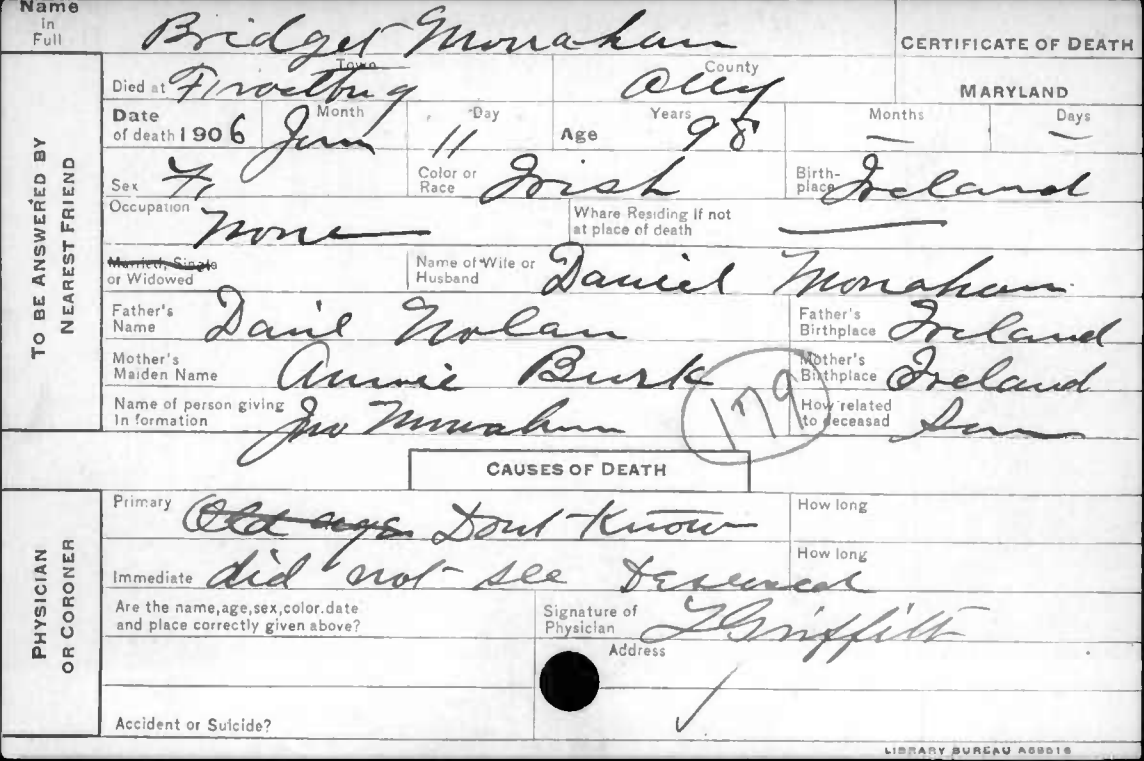 Name in Full Bridget Monahan CERTIFICATE OF DEATH
Died at Frostbug Town Ally County MARYLAND
Date of death 1906 Month Jun Day 11 Age Years 98 Months — Days —
Sex F. Color or Race Irish Birth-place Ireland
Occupation None Whare Residing if not at place of death —
Married, Single or Widowed Name of Wife or Husband Daniel Monahan
Father's Name Danil Nolan Father's Birthplace Ireland
Mother's Maiden Name Annie Burk Mother's Birthplace Ireland
Name of person giving Information Jno Monahan How related to deceasad Son
179
TO BE ANSWERED BY NEAREST FRIEND
CAUSES OF DEATH
Primary Old age Dont Know How long
Immediate did not see Deseased How long
Are the name, age, sex, color. date and place correctly given above? Signature of Physician T Griffith
Address
Accident or Suicide?
PHYSICIAN OR CORONER
LIBRARY BUREAU A68516